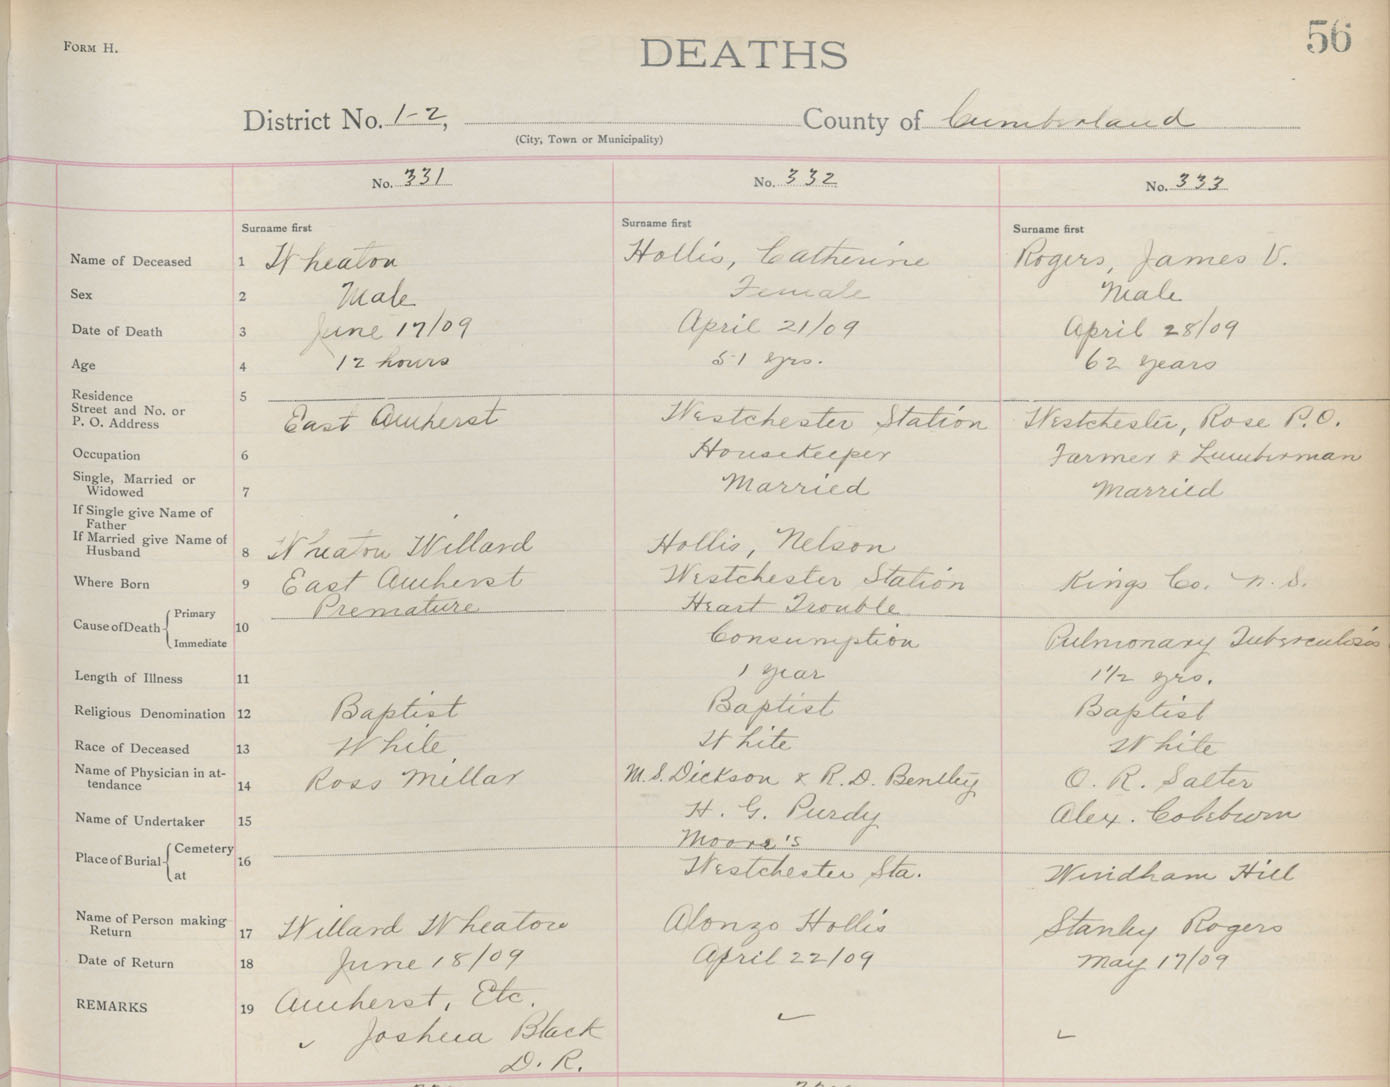 56
FORM H.
DEATHS
District No. 1-2, County of Cumberland
(City, Town or Municipality)
No. 331 No. 332 No. 333
Surname first Surname first Surname first
Name of Deceased 1 Wheaton Hollis, Catherine Rogers, James V.
Sex 2 Male Female Male
Date of Death 3 June 17/09 April 21/09 April 28/09
Age 4 12 hours 51 yrs. 62 years
Residence 5
Street and No. or
P. O. Address East Amherst Westchester Station Westchester, Rose P.O.
Occupation 6 Housekeeper Farmer & Lumberman
Single, Married or
Widowed 7 Married Married
If Single give Name of
Father
If Married give Name of
Husband 8 Wheaton Willard Hollis, Nelson
Where Born 9 East Amherst Westchester Station Kings Co. N.S.
Primary Premature Heart Trouble
Cause of Death 10
Immediate Consumption Pulmonary Tuberculosis
Length of Illness 11 1 year 1 1/2 yrs.
Religious Denomination 12 Baptist Baptist Baptist
Race of Deceased 13 White White White
Name of Physician in at-
tendance 14 Ross Millar M.S. Dickson & R.D. Bentley O. R. Salter
Name of Undertaker 15 H. G. Purdy Alex.
Cemetery Moore's
Place of Burial 16
at Westchester Sta. Windham Hill
Name of Person making
Return 17 Willard Wheaton Alonzo Hollis Stanley Rogers
Date of Return 18 June 18/09 April 22/09 May 17/09
REMARKS 19 Amherst, Etc.
✓ Joshua Black ✓ ✓
D. R.